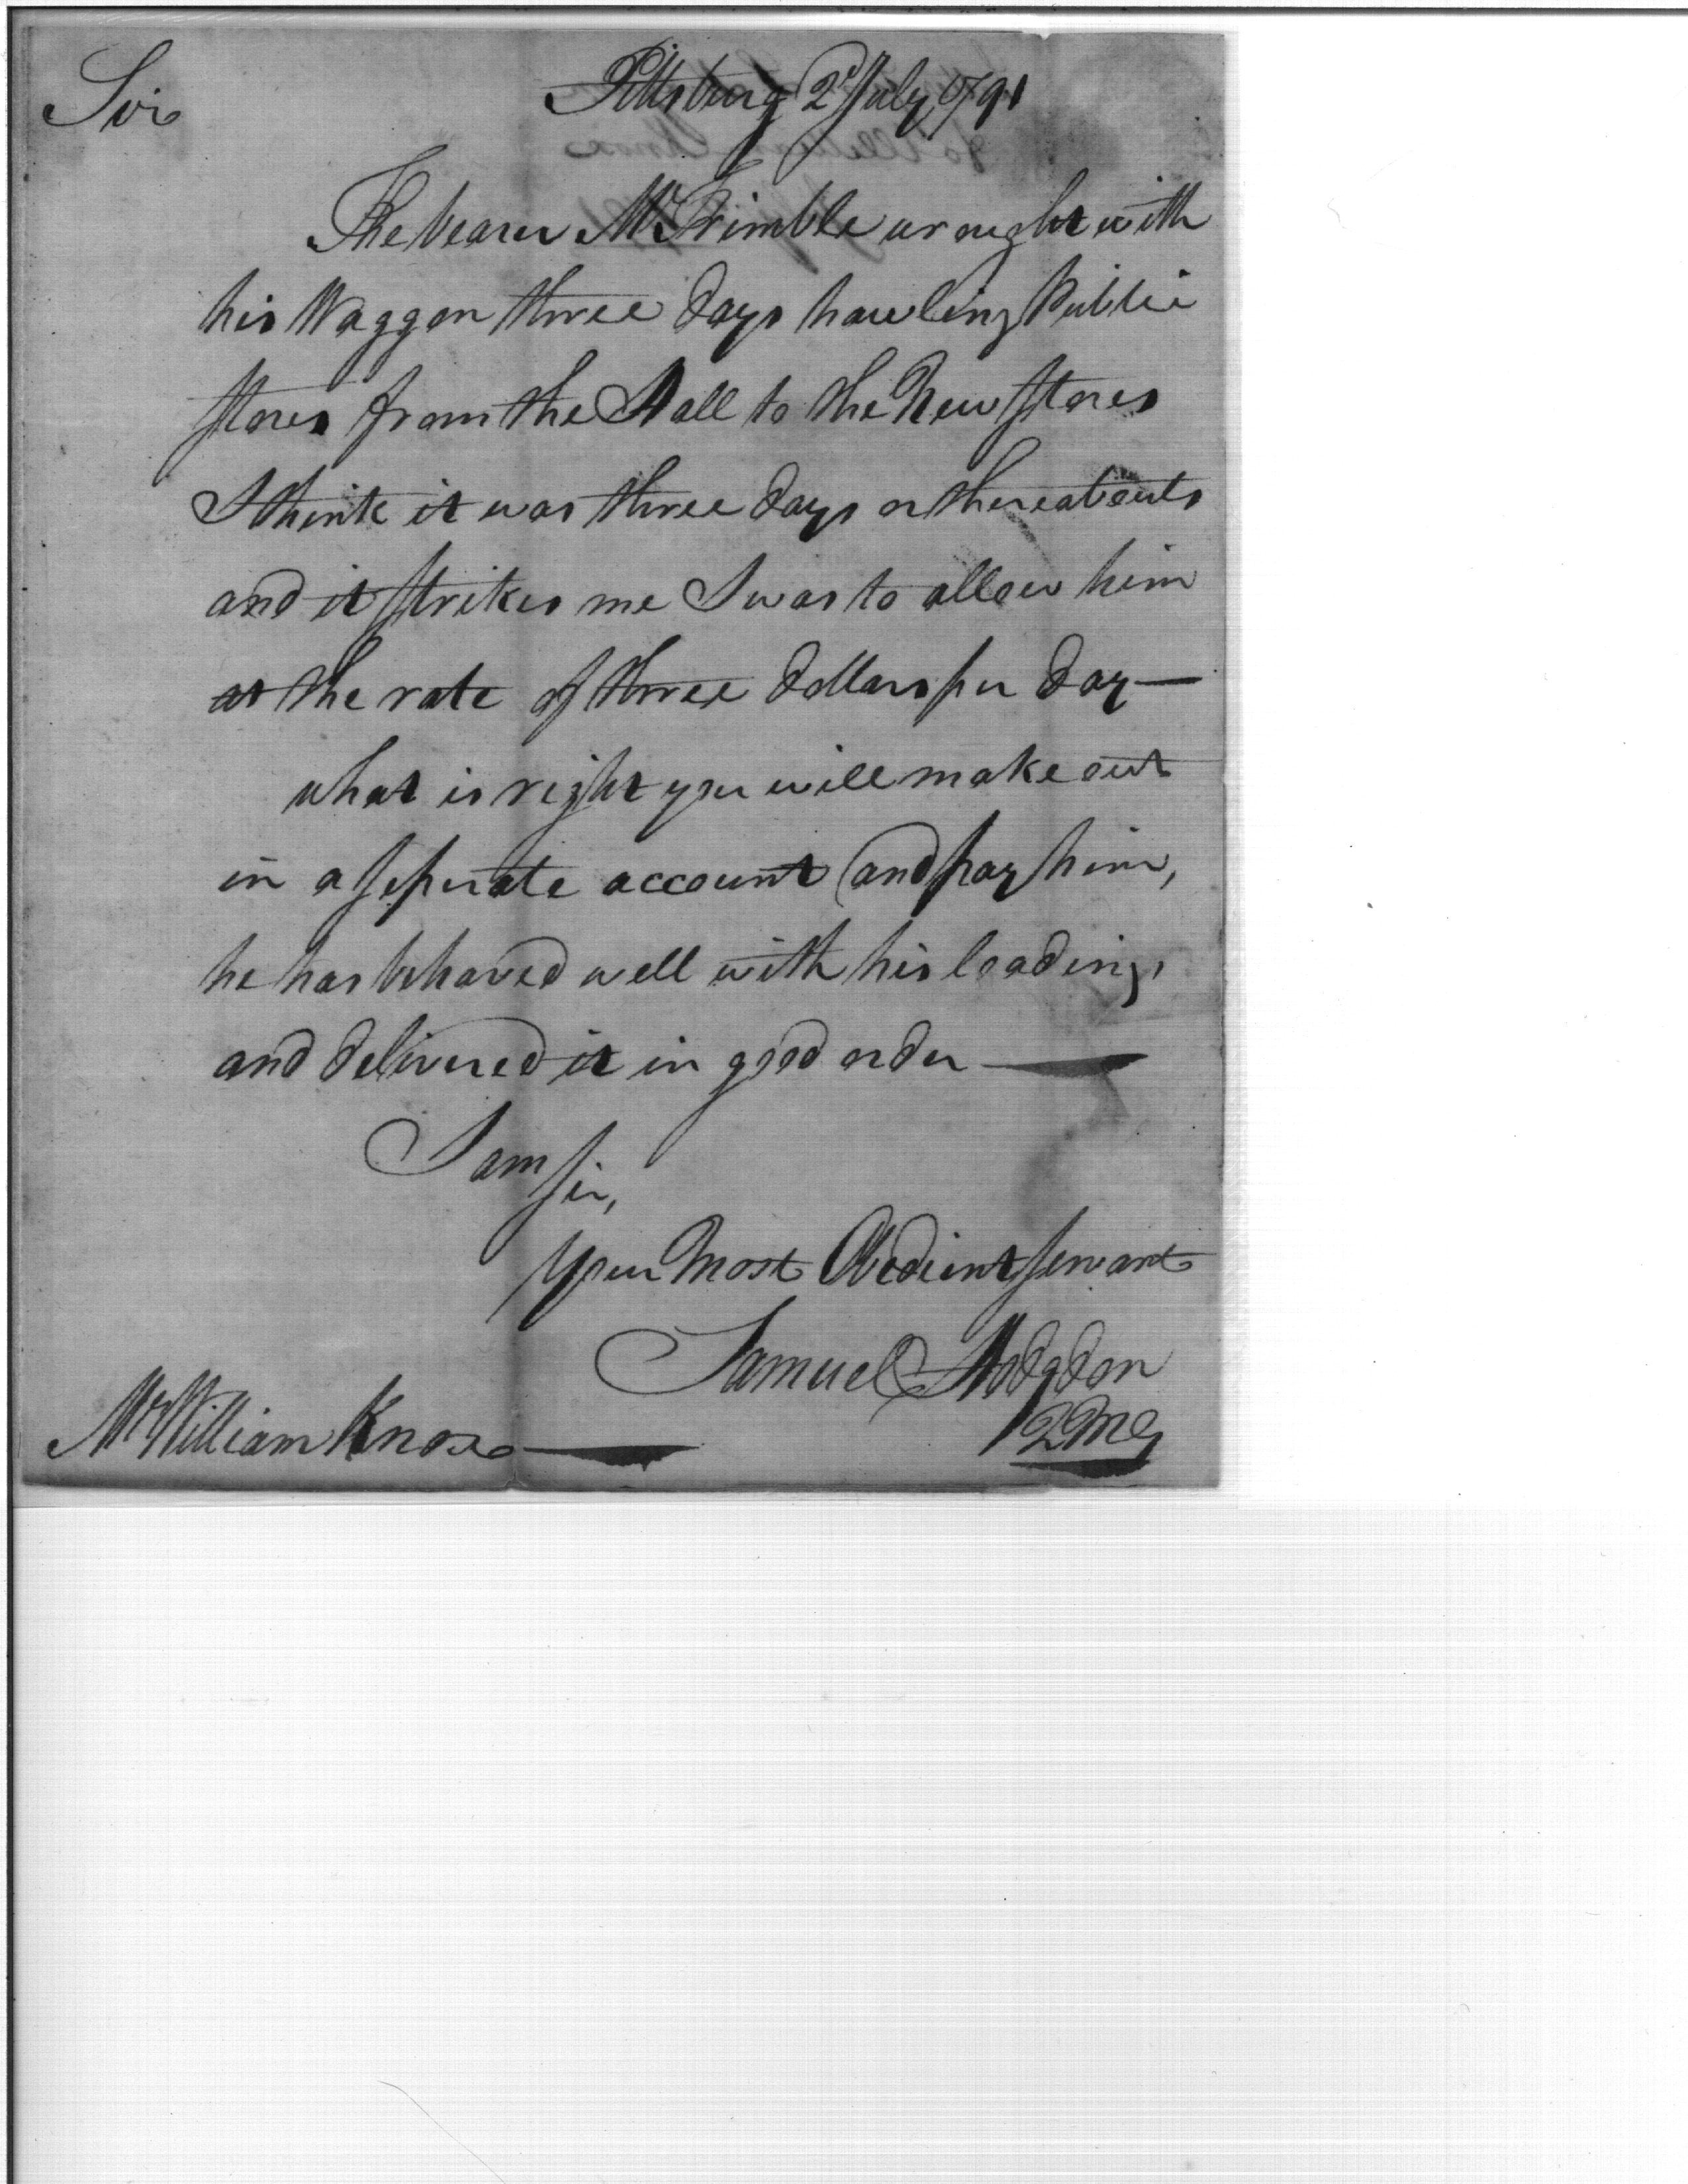 Sir Pittsburg 2d July 1791
The bearer Mr Trimble wrought with
his Waggon three days hauling Public
stores from the Hall to the New Stores
I think it was three days or thereabouts
and it strikes me I was to allow him
at the rate of three dollars per day—
what is right you will make out
in a seperate account and pay him,
he has behaved well with his loading,
and delivered it in good order—
I am
Sir,
Your Most Obedient servant
Samuel Hodgdon
QMG
Mr William Knox—